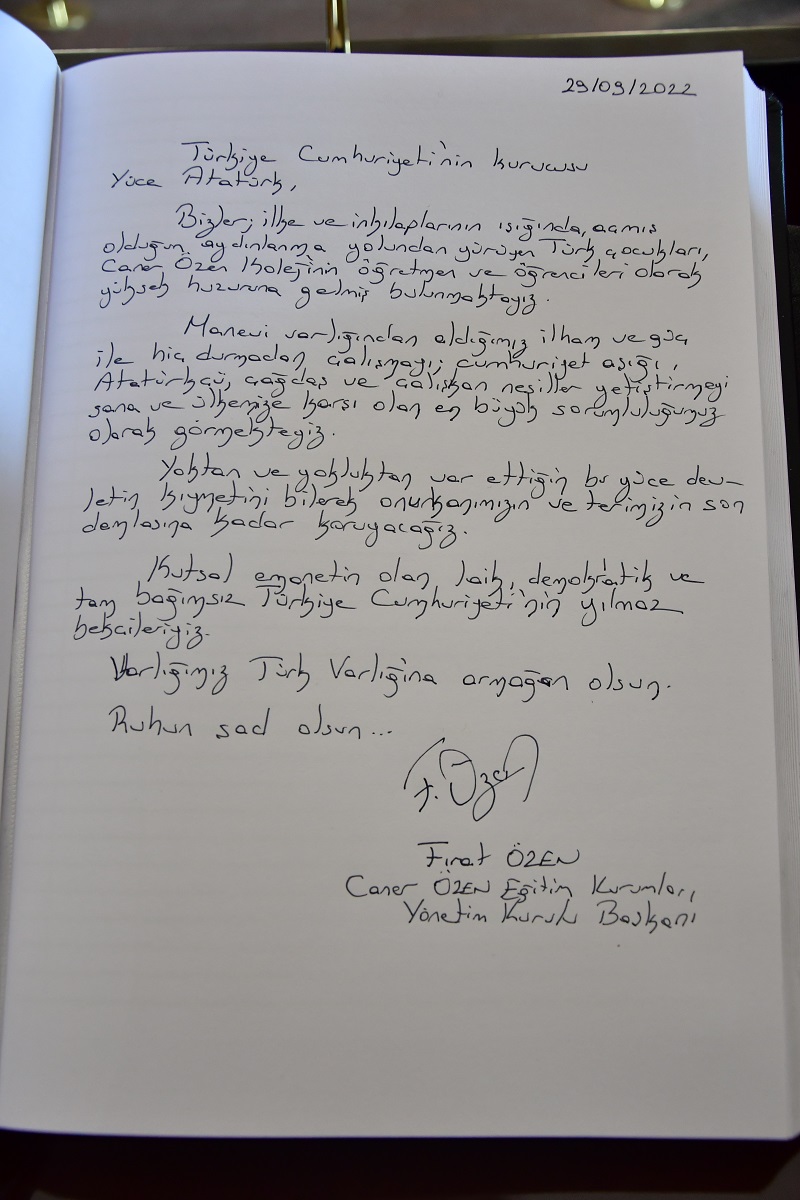 29/09/2022
Türkiye Cumhuriyeti'nin kurucusu
Yüce Atatürk,
Bizler; ilke ve inkılaplarının ışığında, açmış
olduğun aydınlanma yolundan yürüyen Türk çocukları,
Caner Özen Koleji'nin öğretmen ve öğrencileri olarak
yüksek huzuruna gelmiş bulunmaktayız.
Manevi varlığından aldığımız ilham ve güç
ile hiç durmadan çalışmayı; cumhuriyet aşığı,
Atatürkçü, çağdaş ve çalışkan nesiller yetiştirmeyi
sana ve ülkemize karşı olan en büyük sorumluluğumuz
olarak görmekteyiz.
Yoktan ve yokluktan var ettiğin bu yüce dev-
letin kıymetini bilerek onu kanımızın ve terimizin son
damlasına kadar koruyacağız.
Kutsal emanetin olan laik, demokratik ve
tam bağımsız Türkiye Cumhuriyeti'nin yılmaz
bekçileriyiz.
Varlığımız Türk Varlığına armağan olsun.
Ruhun şad olsun...
F. Özen
Fırat ÖZEN
Caner ÖZEN Eğitim Kurumları,
Yönetim Kurulu Başkanı